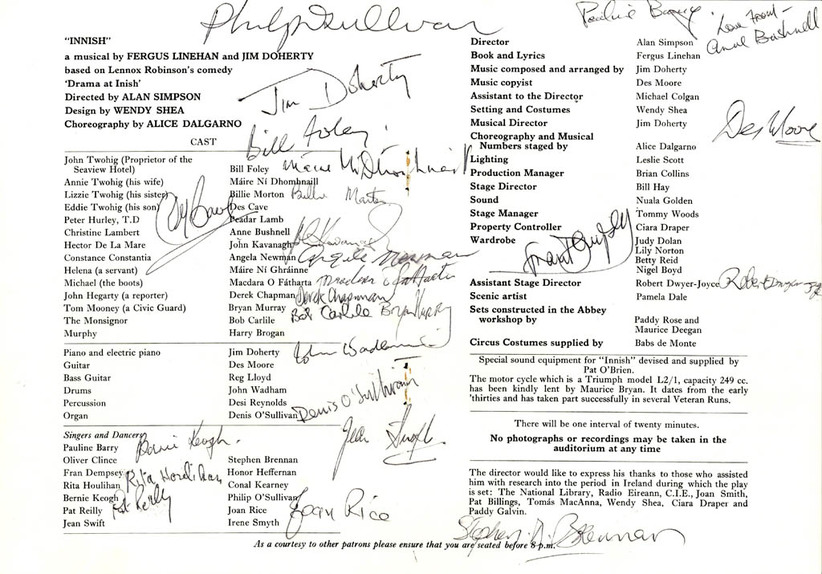 Philip O'Sullivan
Pauline Barry
"INNISH"
a musical by FERGUS LINEHAN and JIM DOHERTY
based on Lennox Robinson's comedy
'Drama at Inish'
Directed by ALAN SIMPSON
Design by WENDY SHEA
Choreography by ALICE DALGARNO
Jim Doherty
Bill Foley
CAST
John Twohig (Proprietor of the
Seaview Hotel) Bill Foley
Máire Ní Dhomhnaill
Annie Twohig (his wife) Máire Ní Dhomhnaill
Lizzie Twohig (his sister) Billie Morton
Billie Morton
Eddie Twohig (his son) Des Cave
Peter Hurley, T.D Peadar Lamb
Christine Lambert Anne Bushnell
Hector De La Mare John Kavanagh
Constance Constantia Angela Newman
Angela Newman
Helena (a servant) Máire Ní Ghráinne
Michael (the boots) Macdara O Fátharta
Macdara O Fátharta
John Hegarty (a reporter) Derek Chapman
Derek Chapman
Tom Mooney (a Civic Guard) Bryan Murray
Bryan Murray
The Monsignor Bob Carlile
Bob Carlile
Murphy Harry Brogan
Piano and electric piano Jim Doherty
Guitar Des Moore
Bass Guitar Reg Lloyd
Drums John Wadham
John Wadham
Percussion Desi Reynolds
Organ Denis O'Sullivan
Denis O'Sullivan
Singers and Dancers
Pauline Barry
Oliver Clince Stephen Brennan
Fran Dempsey Honor Heffernan
Rita Houlihan Conal Kearney
Bernie Keogh Philip O'Sullivan
Pat Reilly Joan Rice
Jean Swift Irene Smyth
Bernie Keogh
Rita Houlihan
Pat Reilly
Jean Swift
Joan Rice
Love from
Anne Bushnell
Director Alan Simpson
Book and Lyrics Fergus Linehan
Music composed and arranged by Jim Doherty
Music copyist Des Moore
Assistant to the Director Michael Colgan
Setting and Costumes Wendy Shea
Musical Director Jim Doherty
Des Moore
Choreography and Musical
Numbers staged by Alice Dalgarno
Lighting Leslie Scott
Production Manager Brian Collins
Stage Director Bill Hay
Sound Nuala Golden
Stage Manager Tommy Woods
Property Controller Ciara Draper
Wardrobe Judy Dolan
Lily Norton
Betty Reid
Nigel Boyd
Assistant Stage Director Robert Dwyer-Joyce
Robert Dwyer Joyce
Scenic artist Pamela Dale
Sets constructed in the Abbey
workshop by Paddy Rose and
Maurice Deegan
Circus Costumes supplied by Babs de Monte
Special sound equipment for "Innish" devised and supplied by
Pat O'Brien.
The motor cycle which is a Triumph model L2/1, capacity 249 cc.
has been kindly lent by Maurice Bryan. It dates from the early
'thirties and has taken part successfully in several Veteran Runs.
There will be one interval of twenty minutes.
No photographs or recordings may be taken in the
auditorium at any time
The director would like to express his thanks to those who assisted
him with research into the period in Ireland during which the play
is set: The National Library, Radio Eireann, C.I.E., Joan Smith,
Pat Billings, Tomás MacAnna, Wendy Shea, Ciara Draper and
Paddy Galvin.
Stephen D. Brennan
As a courtesy to other patrons please ensure that you are seated before 8 p.m.